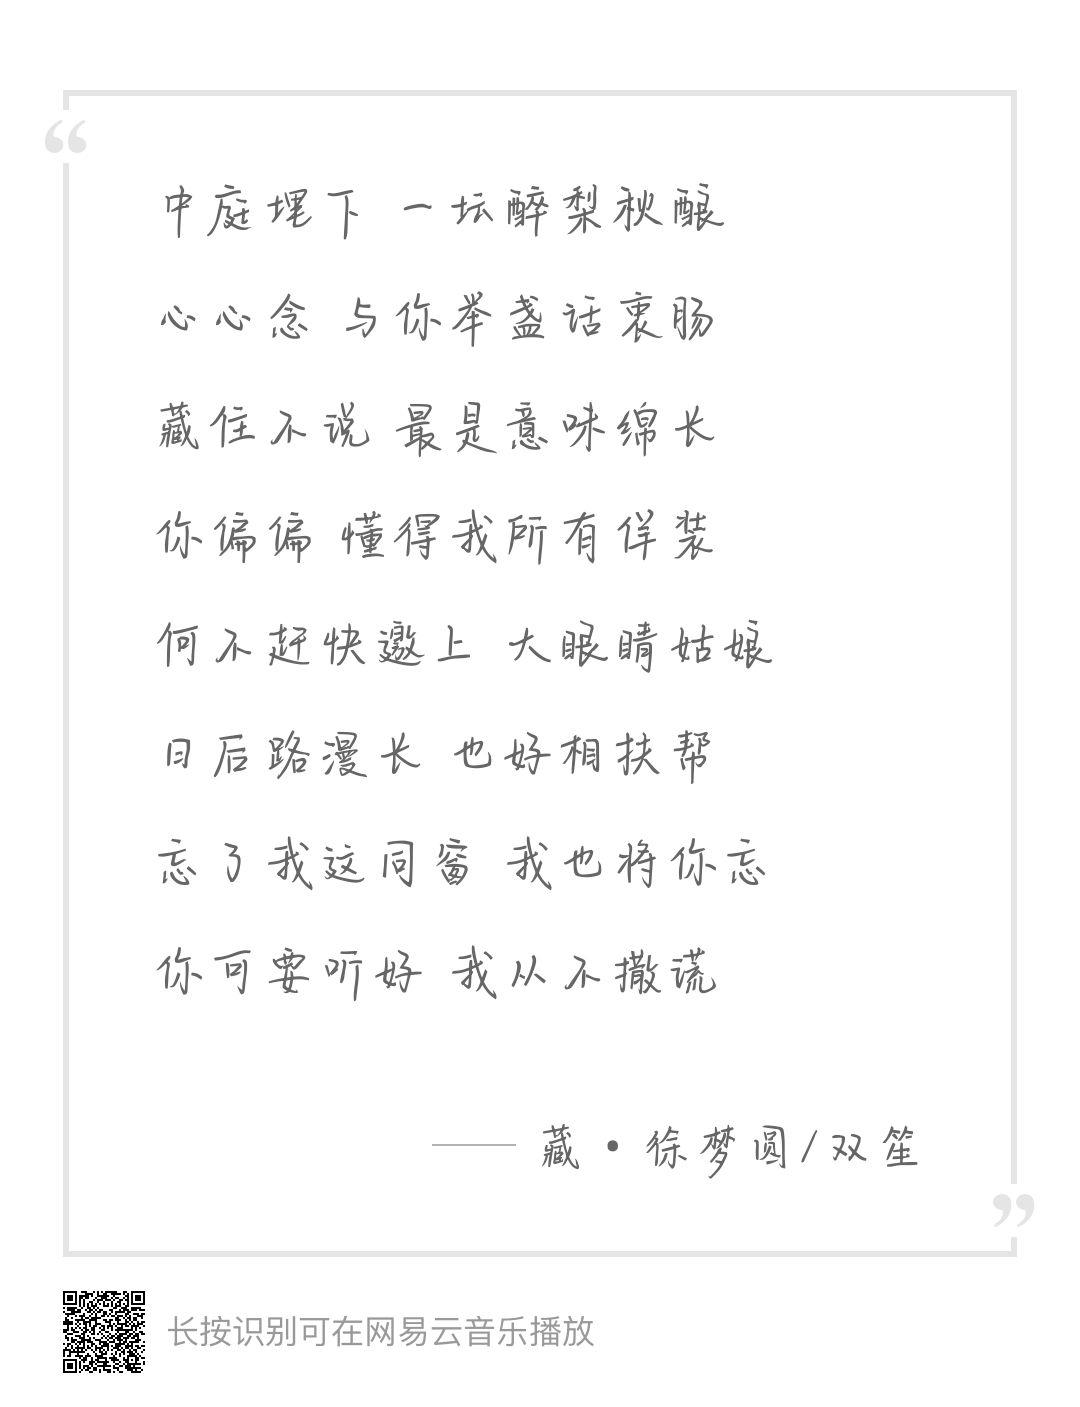 中庭埋下 一坛醉梨秋酿
心心念 与你举盏话衷肠
藏住不说 最是意味绵长
你偏偏 懂得我所有佯装
何不赶快邀上 大眼睛姑娘
日后路漫长 也好相扶帮
忘了我这同窗 我也将你忘
你可要听好 我从不撒谎
—— 藏·徐梦圆/双笙
长按识别可在网易云音乐播放